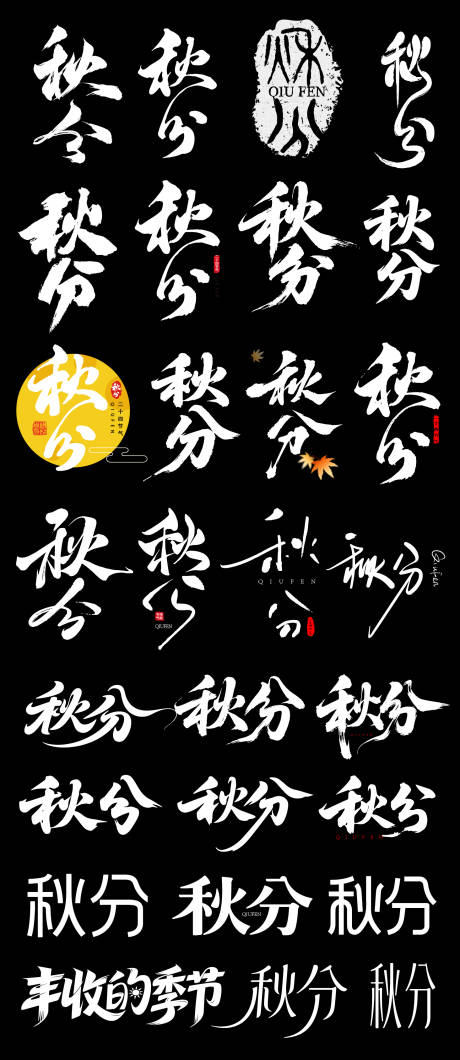 秋分
秋分
秋分
QIU FEN
秋分
秋分
秋分
秋分
秋分
秋分
秋分
二十四节气
QIUFEN
秋分
秋分
秋分
秋分
秋分
QIUFEN
秋分
QIUFEN
秋分
Qiufen
秋分
秋分
秋分
秋分
秋分
秋分
QIUFEN
秋分
秋分
QIUFEN
秋分
丰收的季节
秋分
秋分